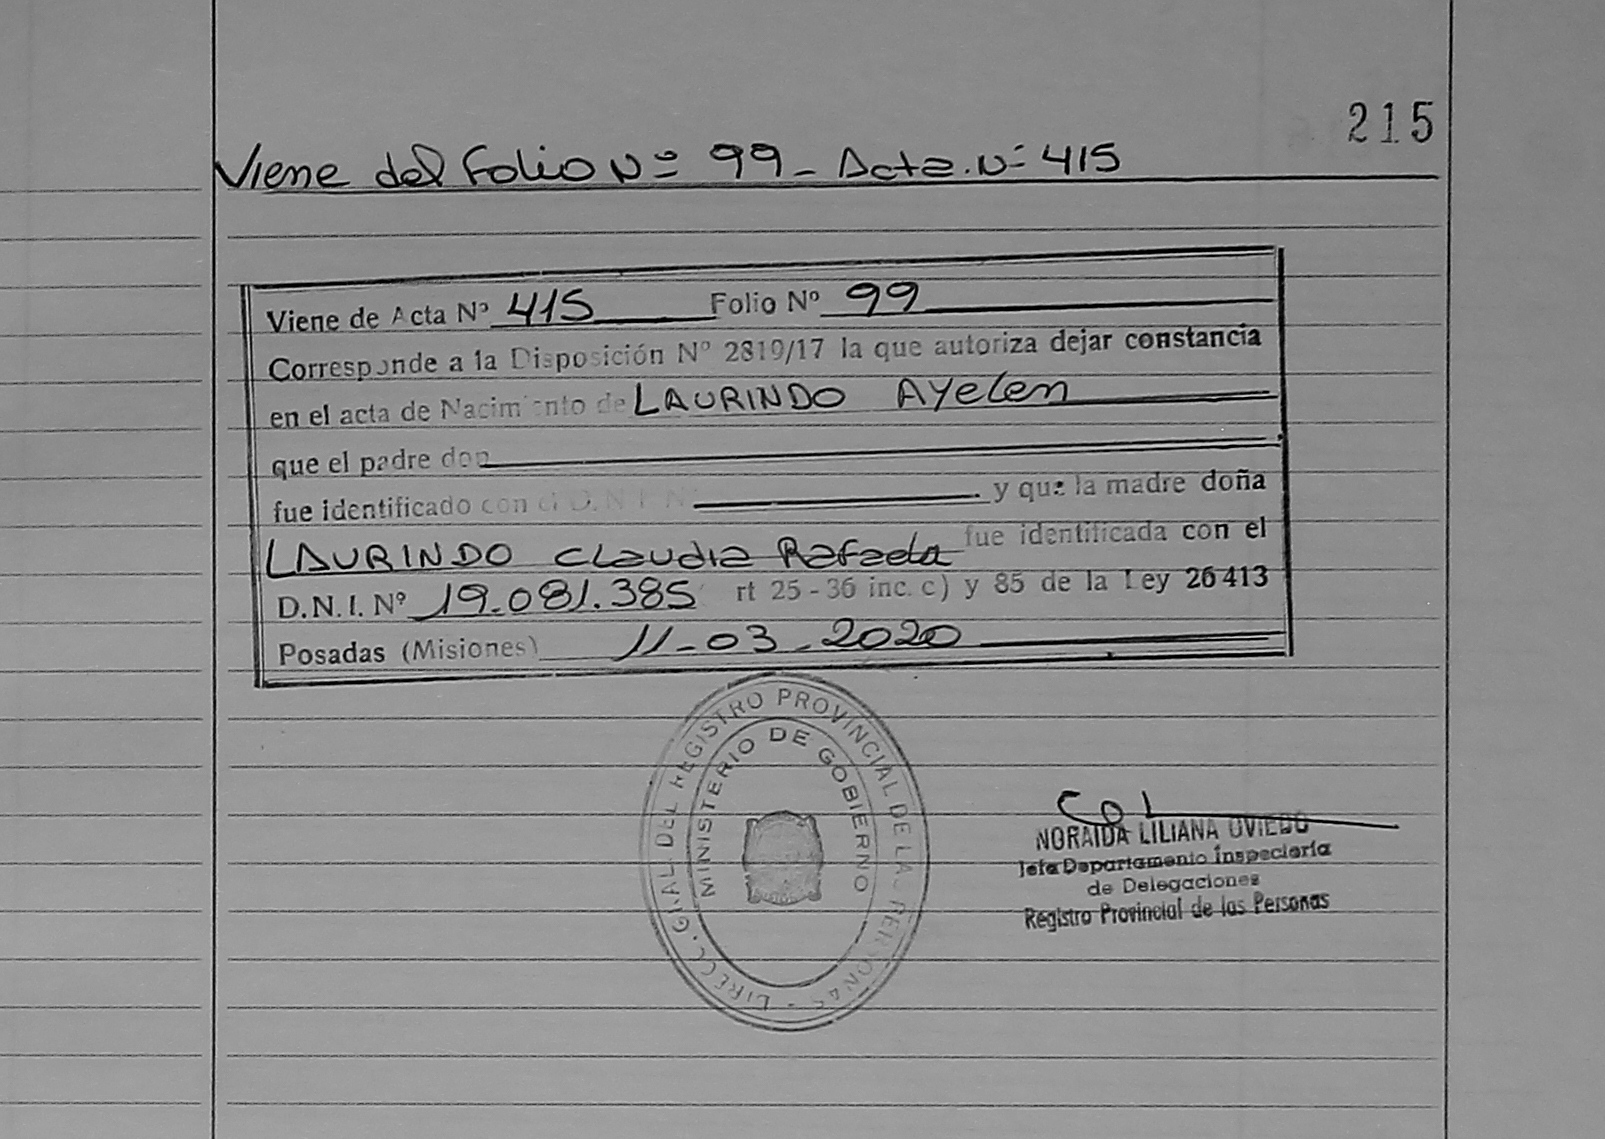 215
Viene del Folio Nº 99 - Acta. Nº 415
Viene de Acta Nº 415 Folio Nº 99
Corresponde a la Disposición Nº 2819/17 la que autoriza dejar constancia
en el acta de Nacimiento de LAURINDO AYelen
que el padre don
fue identificado con el D.N.I. Nº y que la madre doña
LAURINDO Claudia Rafaela fue identificada con el
D.N.I. Nº 19.081.385 rt 25 - 36 inc. c) y 85 de la Ley 26413
Posadas (Misiones) 11-03-2020
DIRECC. GRAL. DEL REGISTRO PROVINCIAL DE LAS PERSONAS -
MINISTERIO DE GOBIERNO
NORAIDA LILIANA OVIEDO
Jefa Departamento Inspectoría
de Delegaciones
Registro Provincial de las Personas